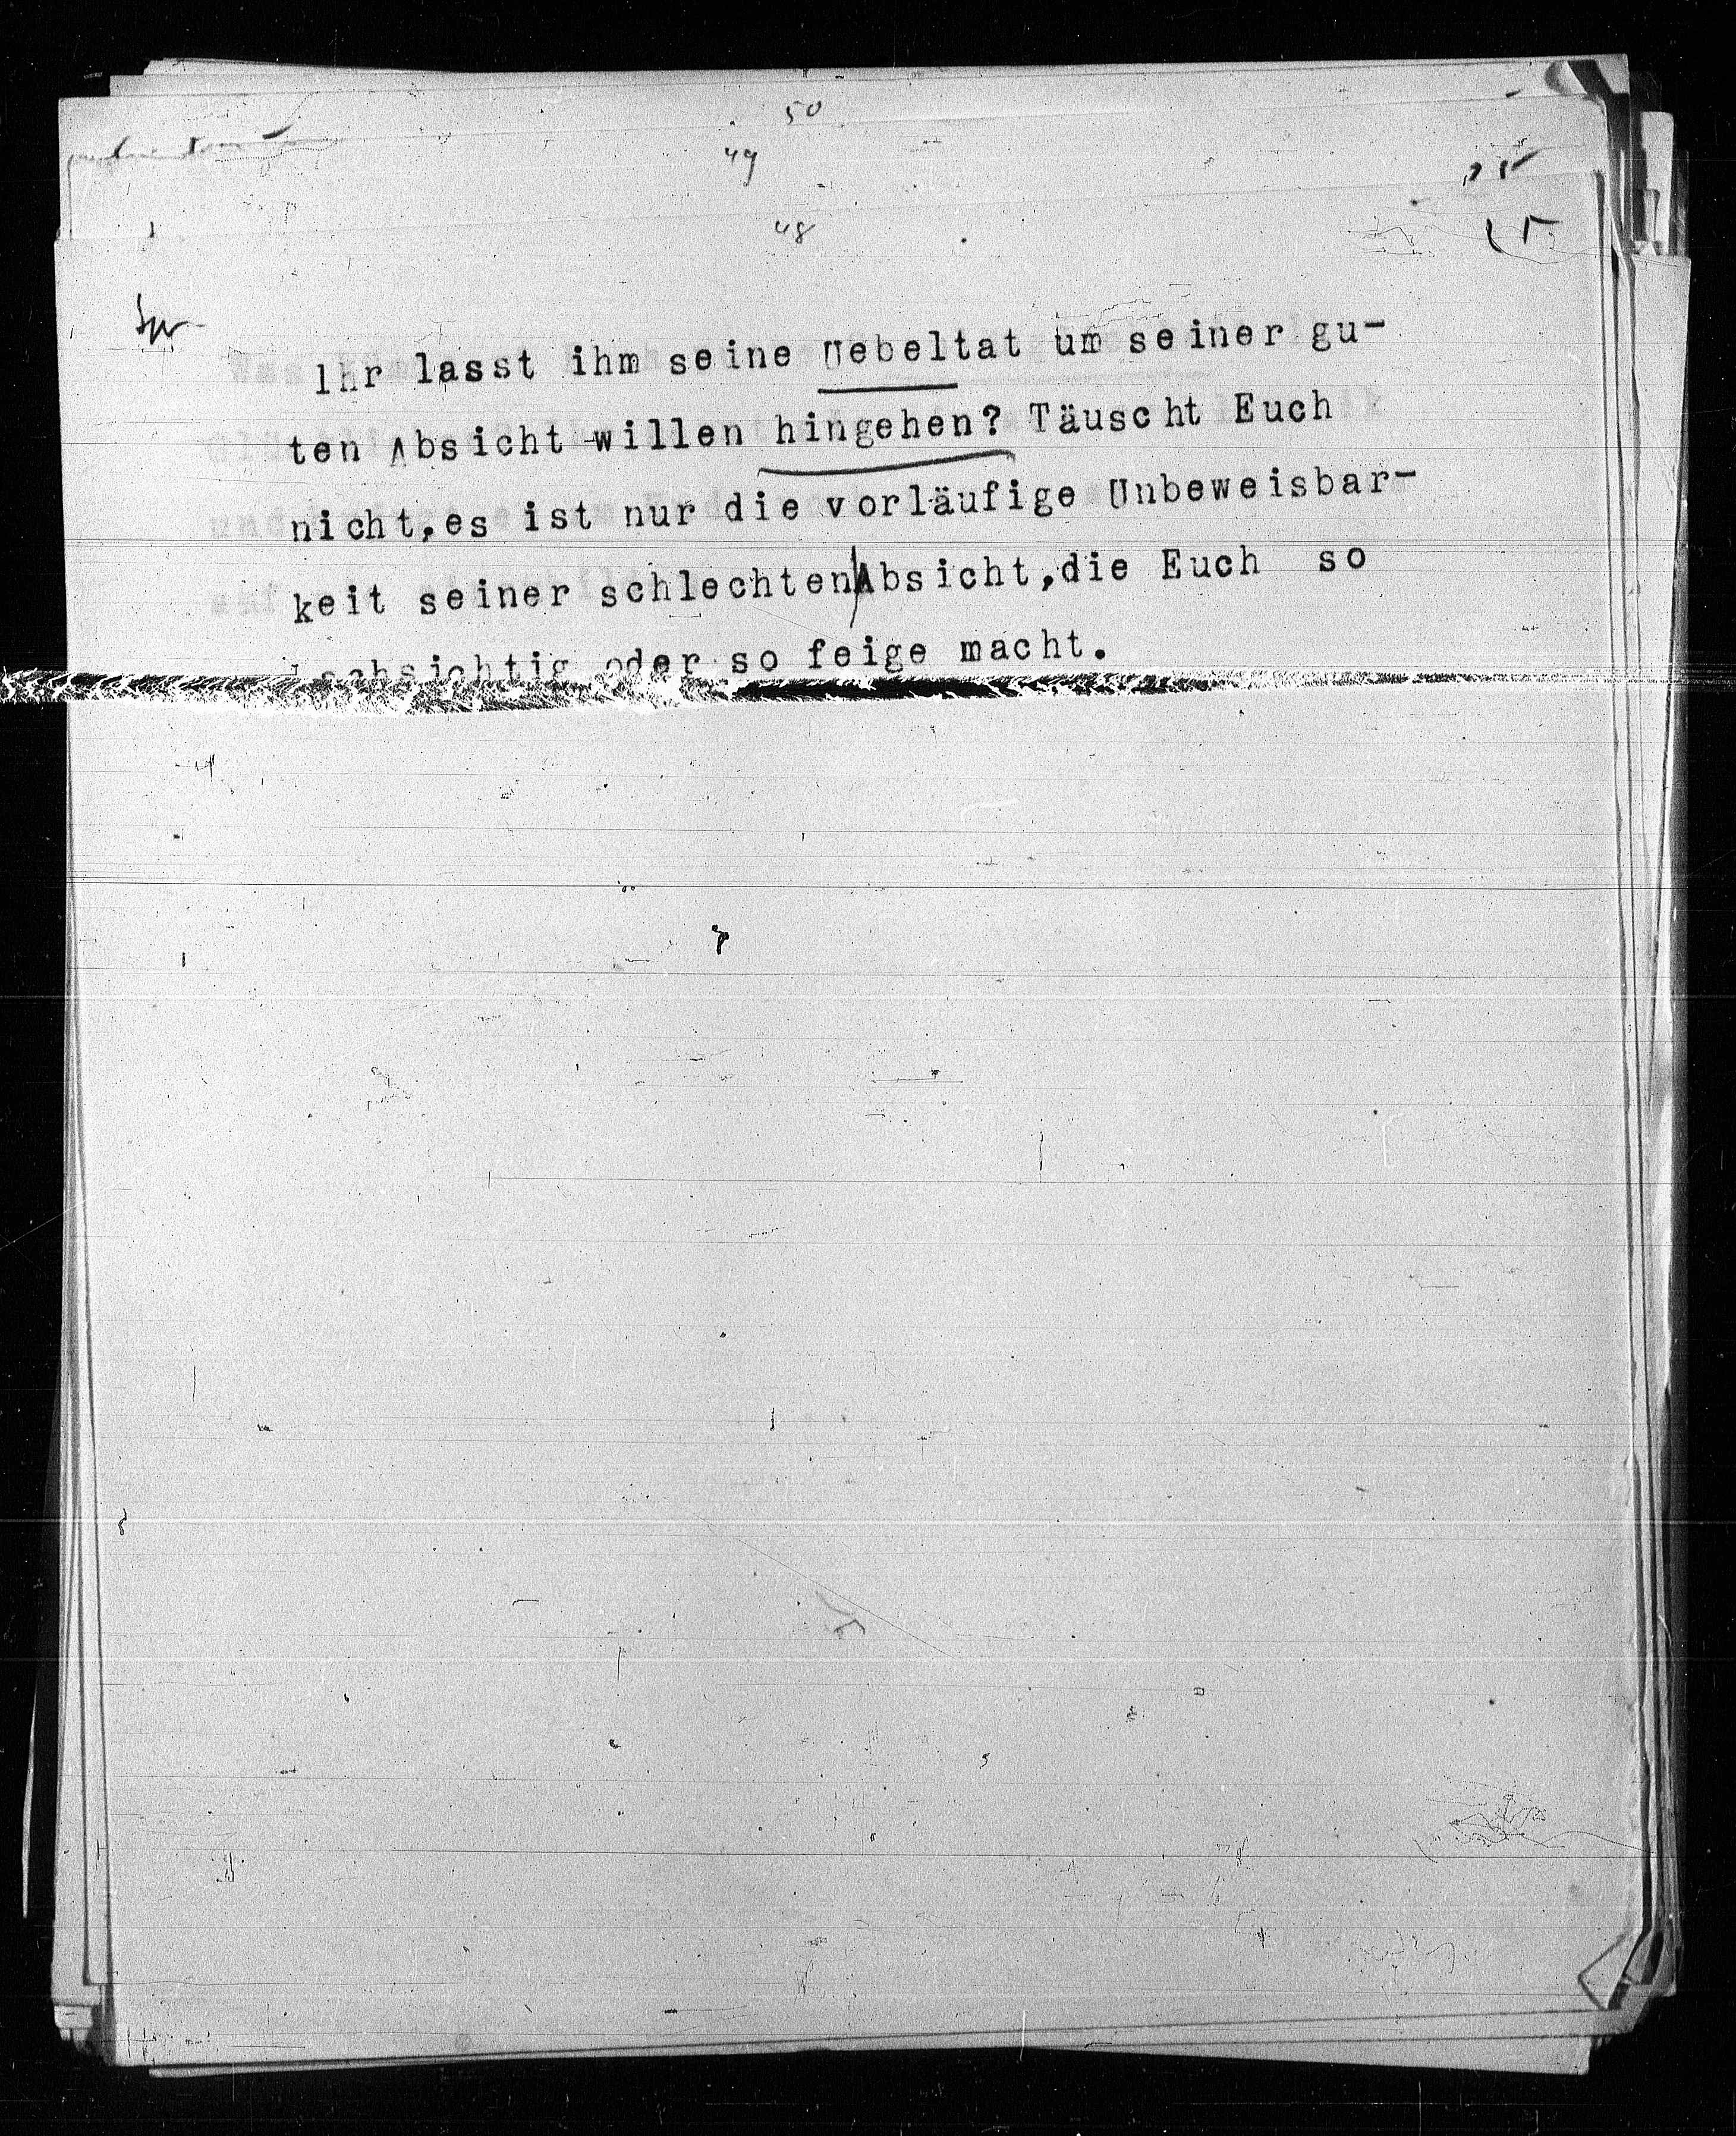 50
49
48
Ihr lasst ihm seine Uebeltat um seiner gu-
ten Absicht willen hingehen? Täuscht Euch
nicht, es ist nur die vorläufige Unbeweisbar-
keit seiner schlechten Absicht, die Euch so
oder so feige macht.